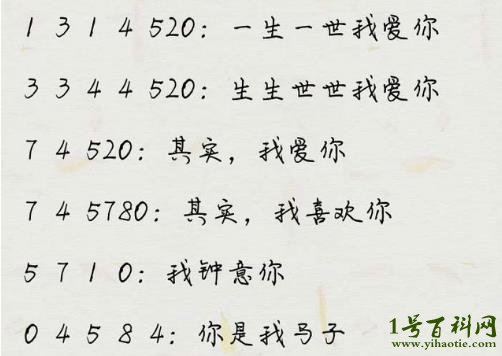 1 3 1 4 520：一生一世我爱你
3 3 4 4 520：生生世世我爱你
7 4 520：其实，我爱你
7 4 5780：其实，我喜欢你
5 7 1 0：我钟意你
0 4 5 8 4：你是我马子
1号百科网
www.yihaotie.com